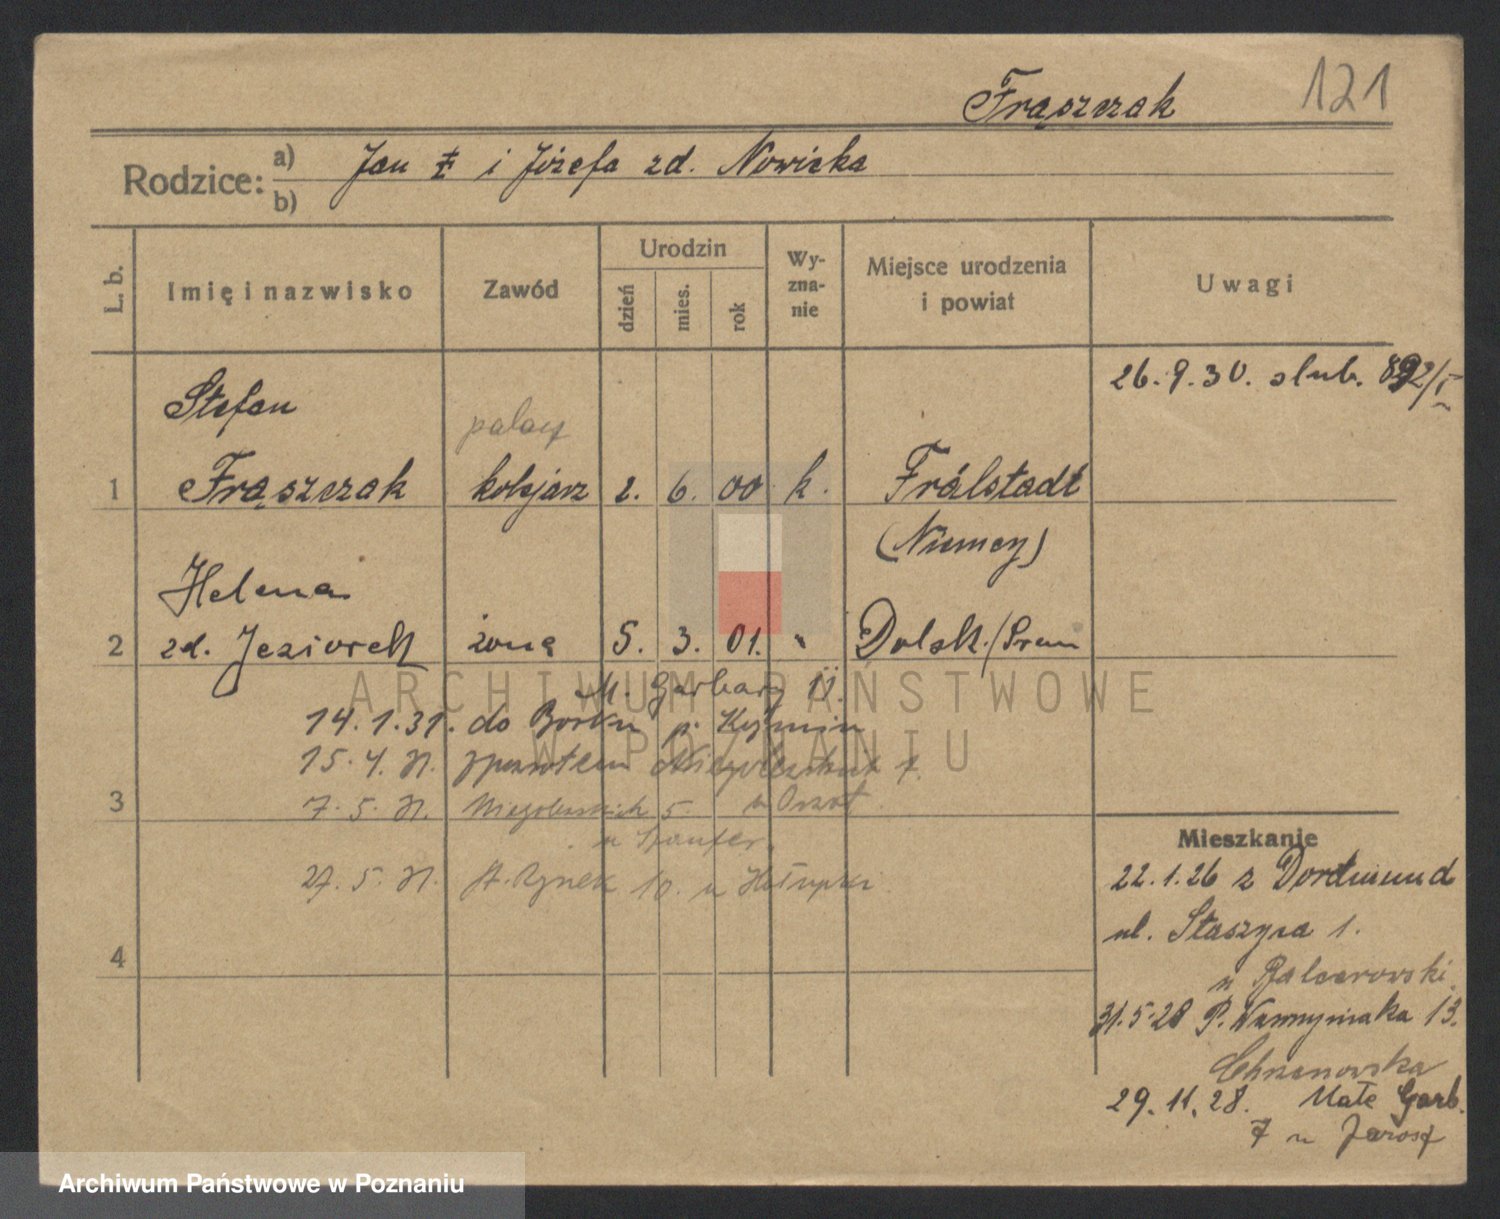 Frąszczak 121
Rodzice: a) Jan F i Józefa zd. Nowicka
b)
L. b. Imię i nazwisko Zawód Urodzin dzień mies. rok Wyznanie Miejsce urodzenia i powiat Uwagi
26.9.30. slub. 892/I
Stefan palacz
1 Frąszczak kolejarz 2. 6. 00 k. Frálstadt
(Niemcy)
Helena
2 zd. Jeziorek żona 5. 3. 01. " Dolsk./Srem
M. Garbary 11.
14.1.31. do Borku p. Koźmin
15.4.31. zpowrotem
3 7.5.31. Niegolewskich 5.
27.5.31. St. Rynek 10. u
4
Mieszkanie
22.1.26 z Dortmund
ul. Staszyca 1.
u Balcerowski
31.5.28 P. Wawrzyniaka 13.
Chrzanowska
29.11.28. Małe Garb.
7 u Jarosz
ARCHIWUM PAŃSTWOWE
W POZNANIU
Archiwum Państwowe w Poznaniu